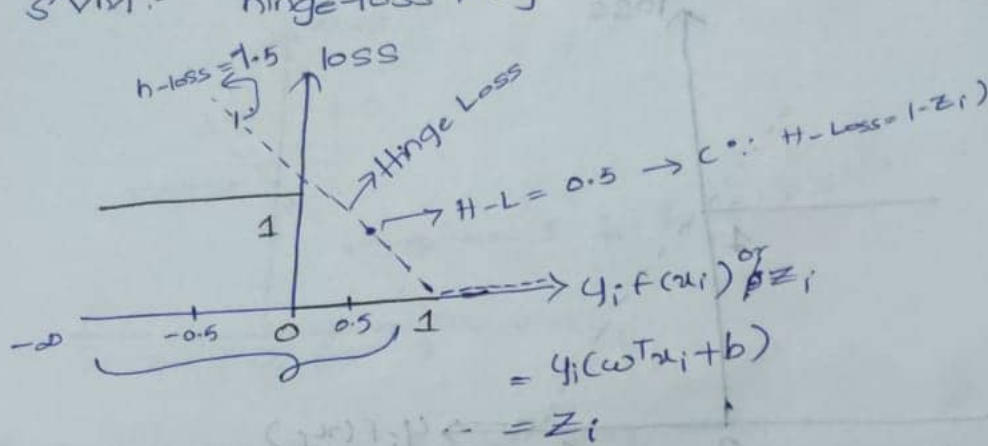 SVM: hinge-loss
h-loss = 1.5
loss
Hinge Loss
H-L = 0.5 → (∵ H-Loss = 1-zi)
1
→ yi f(xi) or zi
-∞ -0.5 0 0.5 1
= yi(ωTxi+b)
= zi